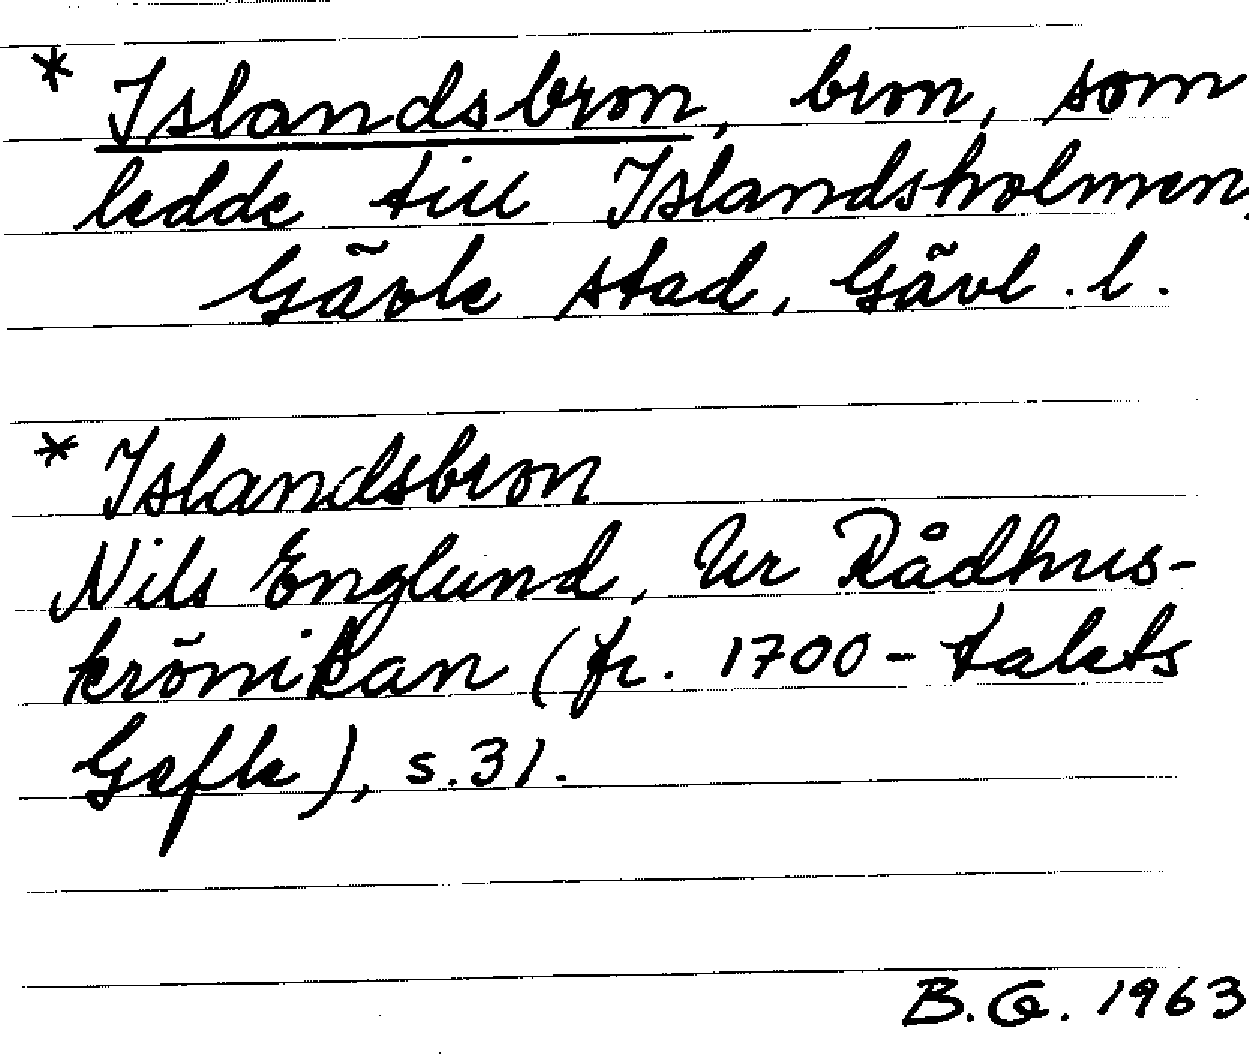 * Islandsbron, bron, som
ledde till Islandsholmen,
Gävle stad, Gävl. l.
* Islandsbron
Nils Englund, Ur Rådhus-
krönikan (fr. 1700-talets
Gefle), s. 31.
B.G. 1963